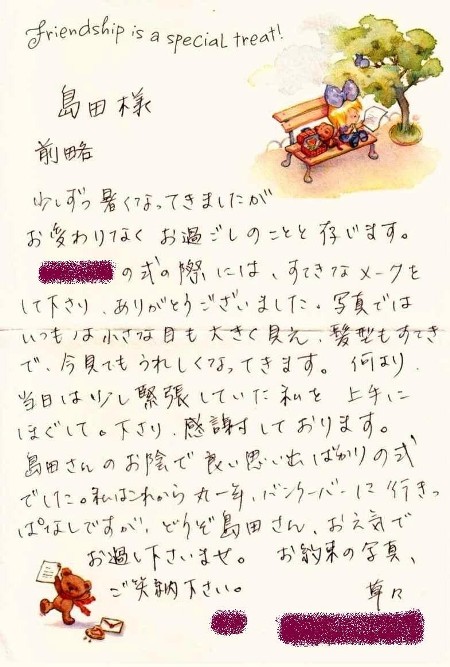 friendship is a special treat!
島田様
前略
少しずつ暑くなってきましたが
お変わりなくお過ごしのことと存じます。
の式の際には、すてきなメークを
して下さり、ありがとうございました。写真では
いつもは小さな目も大きく見え、髪型もすてき
で、今見てもうれしくなってきます。何より、
当日は少し緊張していた私を上手に
ほぐして。下さり、感謝しております。
島田さんのお陰で良い思い出ばかりの式
でした。私はこれから丸一年、バンクーバーに行きっ
ぱなしですが、どうぞ島田さん、お元気で
お過し下さいませ。 お約束の写真、
ご笑納下さい。 草々